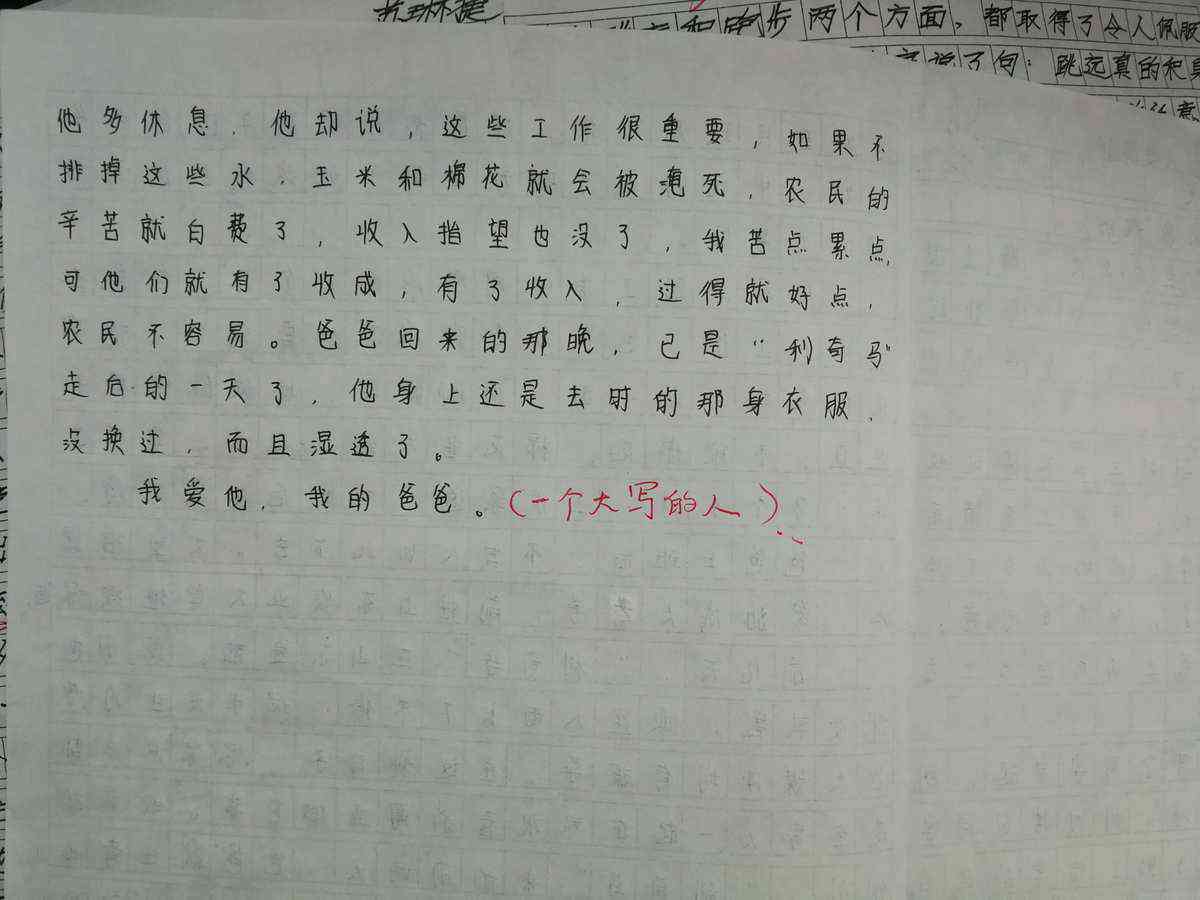 和跑步两个方面，都取得了令人佩服
说了句：跳远真的和
他多休息，他却说，这些工作很重要，如果不
排掉这些水，玉米和棉花就会被淹死，农民的
辛苦就白费了，收入指望也没了，我苦点累点，
可他们就有了收成，有了收入，过得就好点，
农民不容易。爸爸回来的那晚，已是“利奇马”
走后的一天了，他身上还是去时的那身衣服，
没换过，而且湿透了。
我爱他，我的爸爸。（一个大写的人）